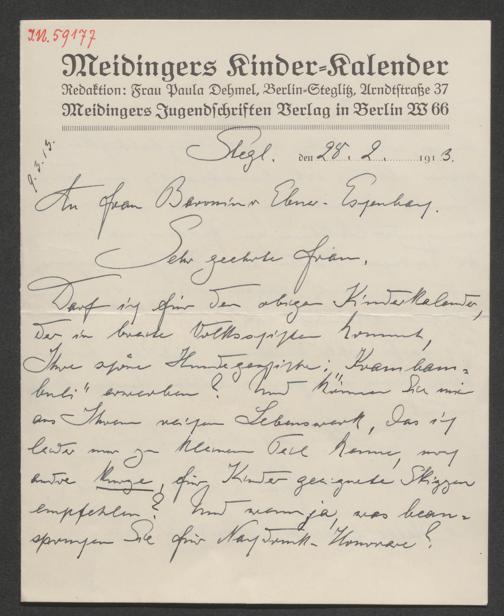 I.N. 59177
Meidingers Kinder-Kalender
Redaktion: Frau Paula Dehmel, Berlin-Steglitz, Arndtstraße 37
Meidingers Jugendschriften Verlag in Berlin W 66
9.3.13.
Stegl. den 28. 2. 1913.
An Frau Baronin v Ebner-Eschenbach.
Sehr geehrte Frau,
Darf ich für den obigen Kinderkalender,
der in breite Volksschichten kommt,
Ihre schöne Hundegeschichte: „Krambam-
buli" erwerben? Und können Sie mir
aus Ihrem reichen Lebenswerk, das ich
leider nur zu kleinem Teil kenne, noch
andre kurze, für Kinder geeignete Skizzen
empfehlen? Und wenn ja, was bean-
spruchen Sie für Nachdruck-Honorare?